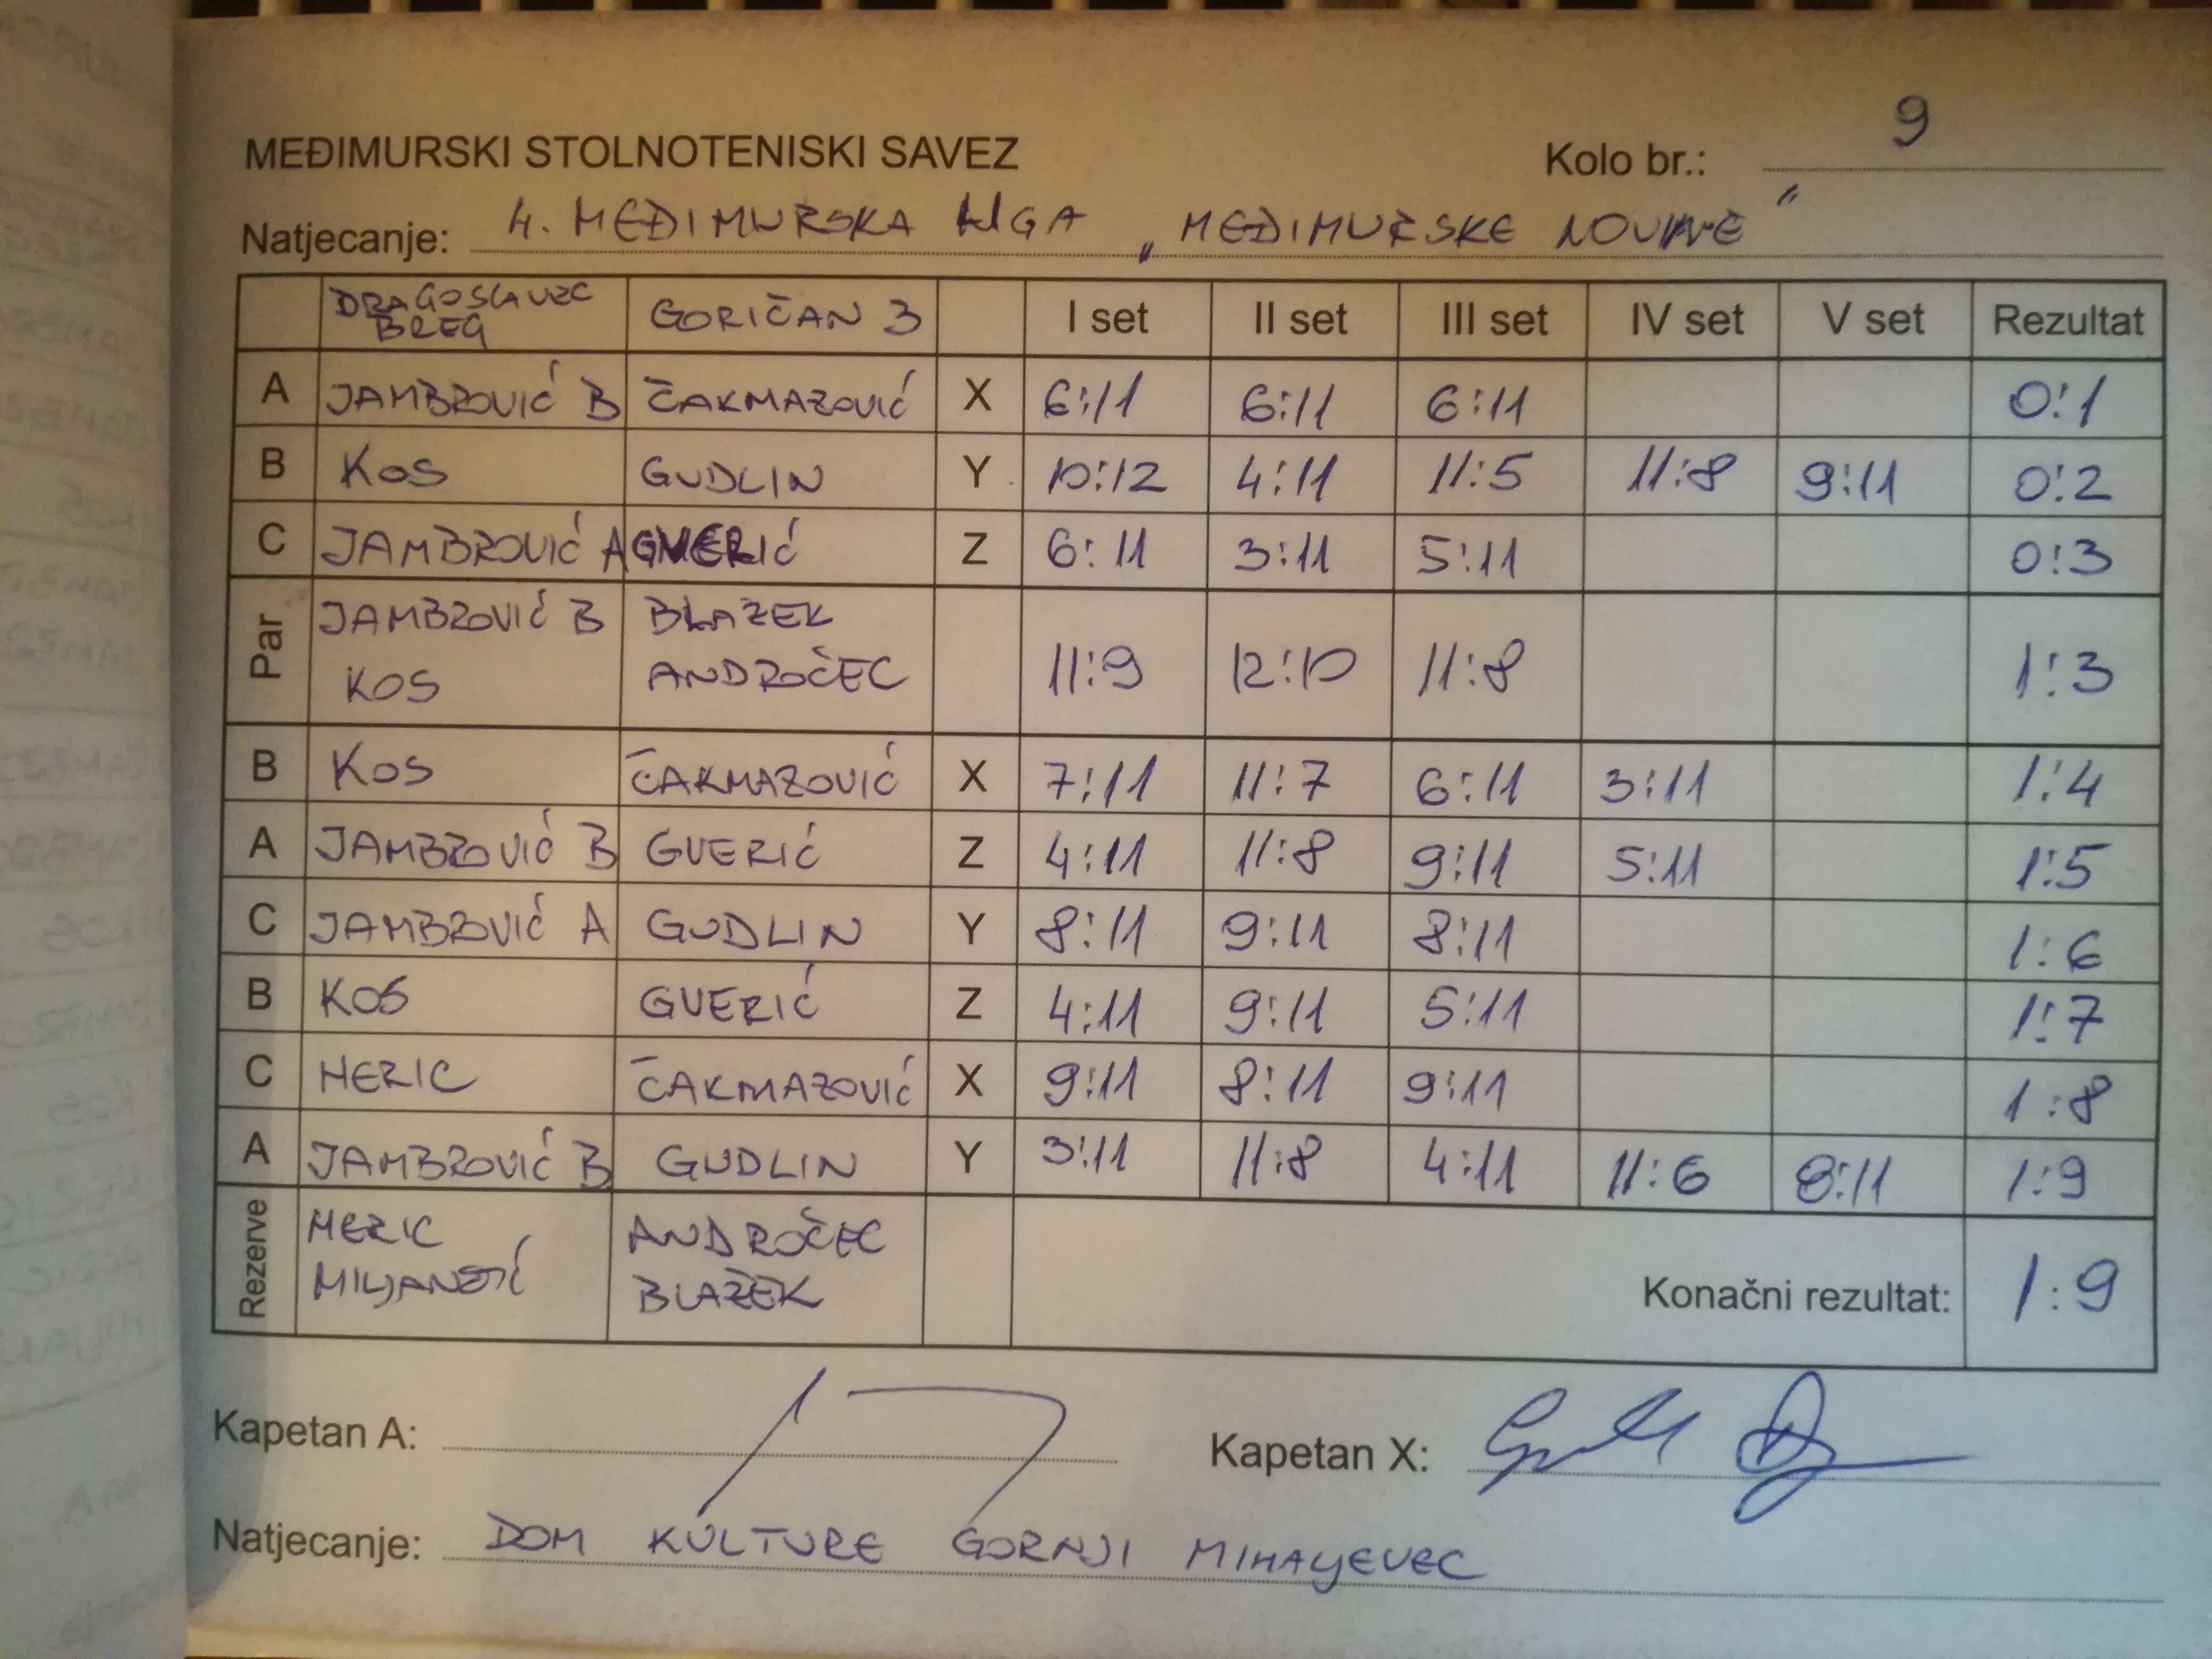 MEĐIMURSKI STOLNOTENISKI SAVEZ Kolo br.: 9
Natjecanje: 4. MEĐIMURSKA LIGA „MEĐIMURSKE NOVINE"
DRAGOSLAVEC BREG GORIČAN 3 I set II set III set IV set V set Rezultat
A JAMBROVIĆ B ČAKMAZOVIĆ X 6:11 6:11 6:11 0:1
B KOS GUDLIN Y 10:12 4:11 11:5 11:8 9:11 0:2
C JAMBROVIĆ A GVERIĆ Z 6:11 3:11 5:11 0:3
Par JAMBROVIĆ B BLAŽEK
KOS ANDROČEC 11:9 12:10 11:8 1:3
B KOS ČAKMAZOVIĆ X 7:11 11:7 6:11 3:11 1:4
A JAMBROVIĆ B GVERIĆ Z 4:11 11:8 9:11 5:11 1:5
C JAMBROVIĆ A GUDLIN Y 8:11 9:11 8:11 1:6
B KOS GVERIĆ Z 4:11 9:11 5:11 1:7
C HERIC ČAKMAZOVIĆ X 9:11 8:11 9:11 1:8
A JAMBROVIĆ B GUDLIN Y 3:11 11:8 4:11 11:6 8:11 1:9
Rezerve HERIC ANDROČEC
BLAŽEK
Konačni rezultat: 1:9
Kapetan A: Kapetan X:
Natjecanje: DOM KULTURE GORNJI MIHALJEVEC